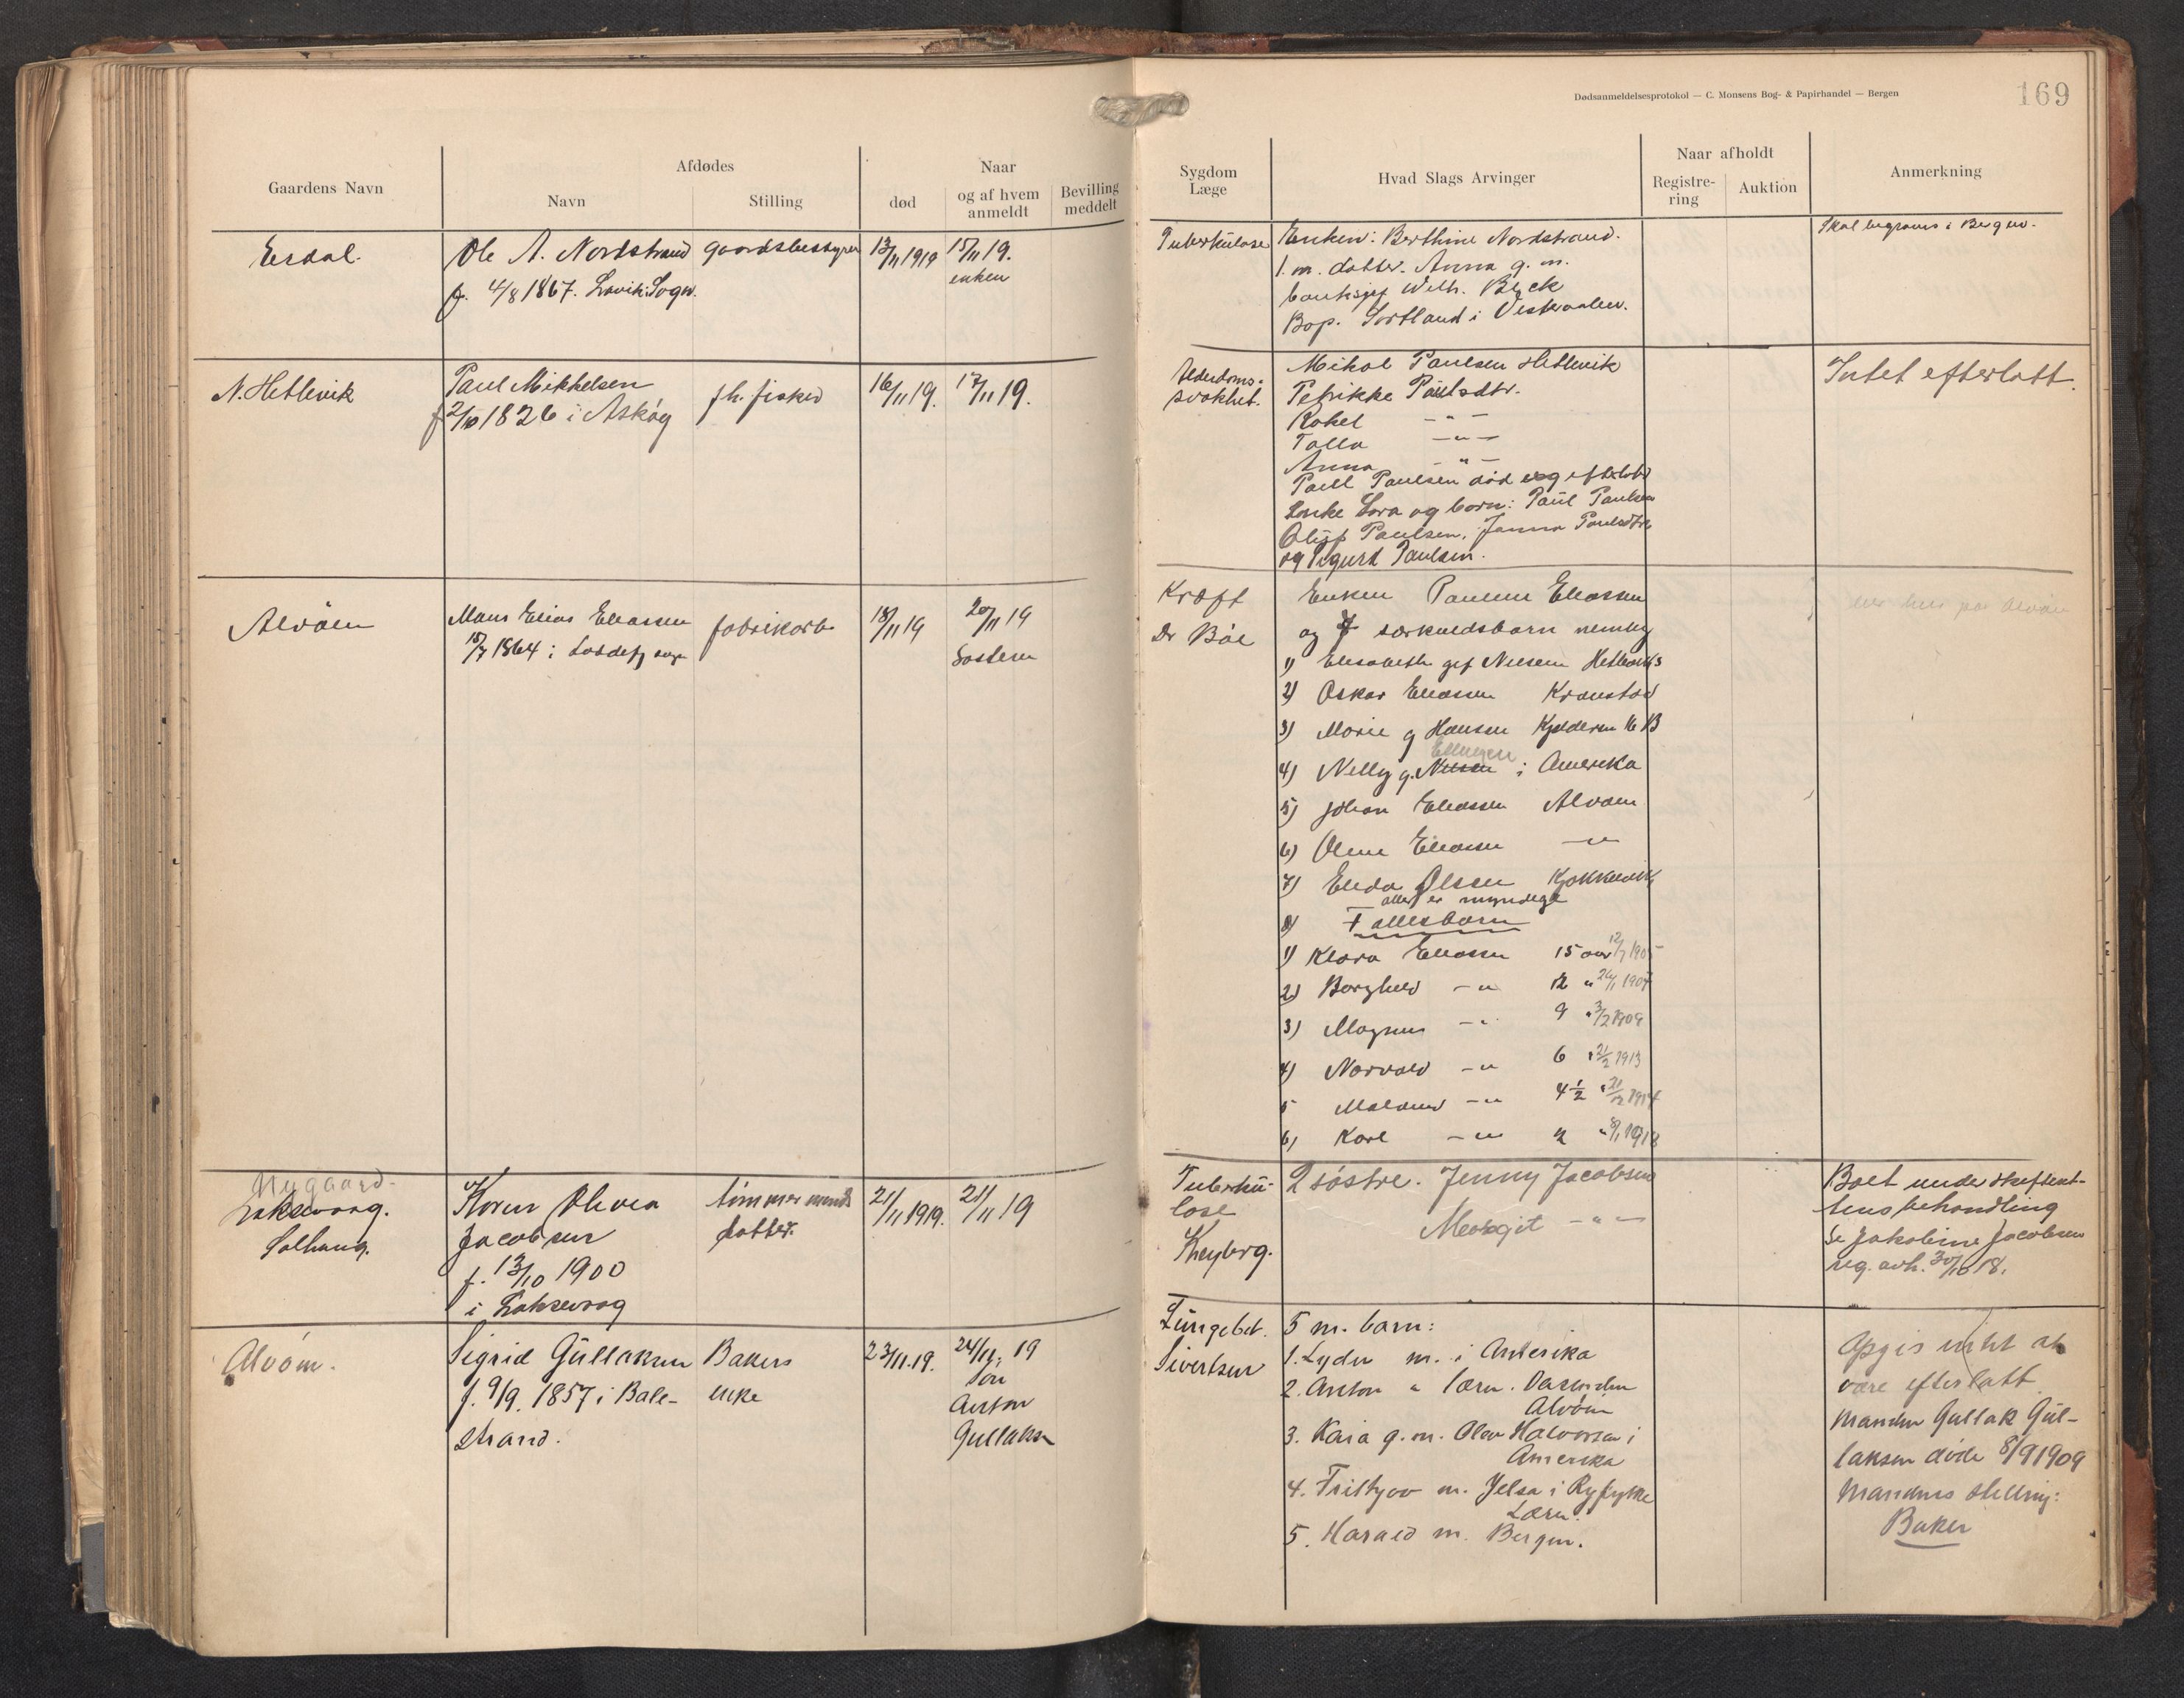 Dødsanmeldelsesprotokol — C. Monsens Bog- & Papirhandel — Bergen
169
Gaardens Navn
Afdødes
Navn
Stilling
død
Naar
og af hvem
anmeldt
Bevilling
meddelt
Sygdom
Læge
Hvad Slags Arvinger
Naar afholdt
Registre-
ring
Auktion
Anmerkning
Erdal.
Ole A. Nordstrand
f. 4/8 1867. Lavik: Sogn.
gaardsbestyrer
13/11 1919
15/11 19.
enken
Tuberkulose
Enken: Berthine Nordstrand.
1. m. datter. Anna g. m.
banksjef Wilh. Beck
Bop. Sortland i Vesteraalen.
Skal begraves i Bergen.
N. Hetlevik
Paul Mikkelsen
f 2/10 1826 i Askøy
fh. fisker
16/11 19.
17/11 19.
Alderdoms-
svakhet.
Mikal Paulsen Hetlevik
Petrikke Paulsdtr.
Rakel - " -
Talla - " -
Anna - " -
Paul Paulsen død og efterlatt
Enke Lara og børn: Paul Paulsen
Oluf Paulsen, Janna Paulsdtr
og Sigurd Paulsen.
Intet efterlatt.
Alvøen
Mons Elias Eliassen
18/7 1864 i
fabrikarb
18/11 19
20/11 19
Søsteren
Kræft
Dr Bøe
Enken Pauline Eliassen
og 7 særkuldsbarn nemlig
1) Elisabeth gif Nilsen Hetlevik
2) Oskar Eliassen
3) Marie g Hansen 16 B
Ellingsen
4) Nelly g. Nilsen i Amerika
5) Johan Eliassen Alvøen
6) Oline Eliassen - " -
7) Elida Olsen
alle er myndige
8) Fællesbarn
1) Klara Eliassen 15 aar 12/7 1905
2) Borghild - " 12 " 26/1 1907
3) Magnus - " 9 " 3/2 1909
4) Norvald - " 6 " 21/2 1913
5 - " 4 1/2 " 21/12 1914
6) Karl - " 2 " 8/1 1918
Nygaard-
Laksevaag.
Solhaug.
Karen Olivia
Jacobsen
f. 13/10 1900
i Laksevaag
tømmermands
datter.
21/11 1919.
21/11 19
Tuberku-
lose
Kneyberg.
2 søstre. Jenny Jacobsen
Margit - " -
Boet under skifteret-
tens behandling
Se Jakobine Jacobsen
reg. avh. 30/10 18.
Alvøen.
Sigrid Gullaksen
f. 9/9. 1857 i Bale-
strand.
Bakers
enke
23/11.19.
24/11. 19
Søn
Anton
Gullaksen
Lungebet.
Sivertsen
5 m. barn:
1. Lyder m. i Amerika
2. Anton " Lærer.
Alvøen
3. Kaia g. m. Olav Halvorsen i
Amerika
4. Frithjov m. Jelsa i Ryfylke
Lærer.
5. Harald m. Bergen.
Opgis intet at
være efterlatt.
Manden Gullak Gul-
laksen døde 8/9 1909
Mandens stilling:
Baker